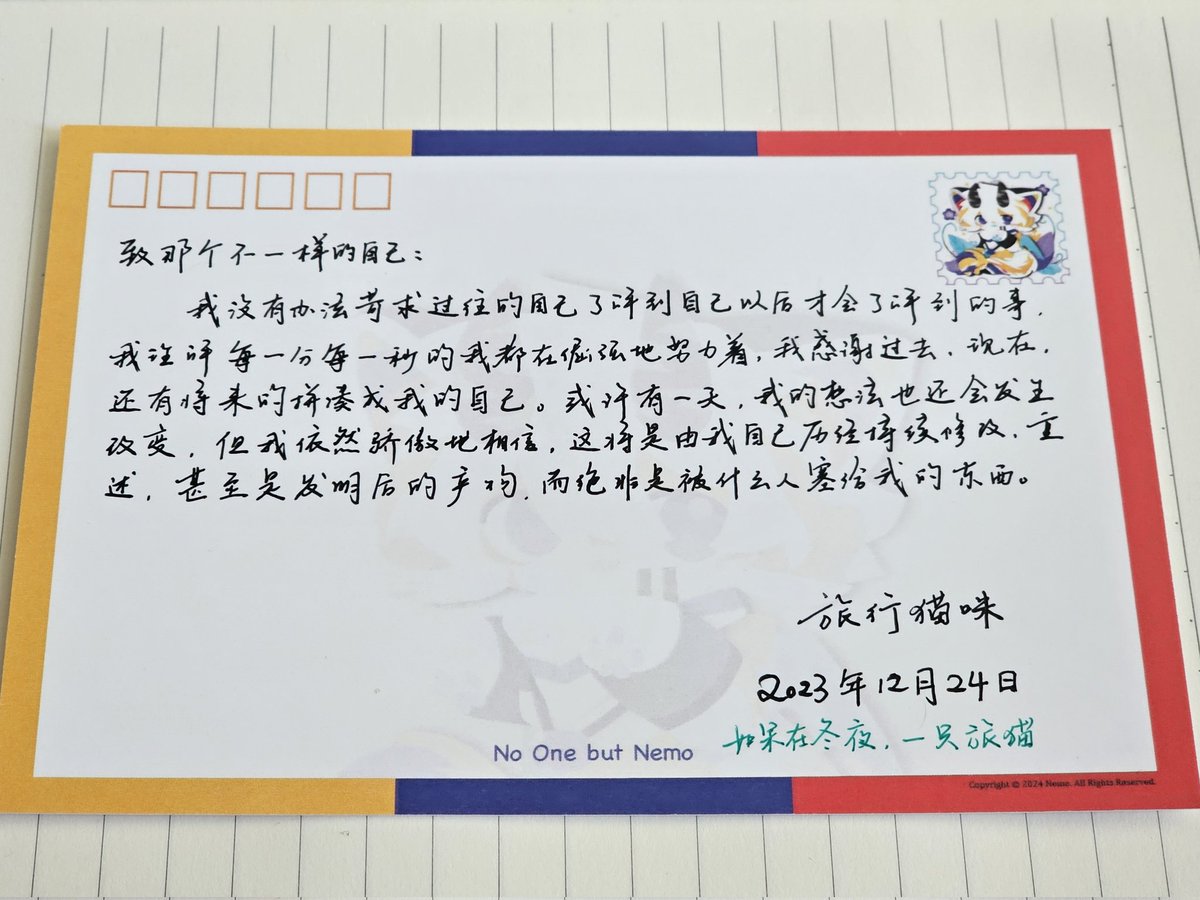 致那个不一样的自己：
我没有办法苛求过往的自己了讶到自己以后才会了讶到的事，
我注讶每一分每一秒的我都在倔强地努力着，我感谢过去、现在，
还有将来的拼凑成我的自己。或许有一天，我的想法也还会发生
改变，但我依然骄傲地相信，这将是由我自己历经持续修改、重
述，甚至是发明后的产物，而绝非是被什么人塞给我的东西。
旅行猫咪
2023年12月24日
No One but Nemo
如果在冬夜，一只旅猫
Copyright © 2024 Nemo. All Rights Reserved.